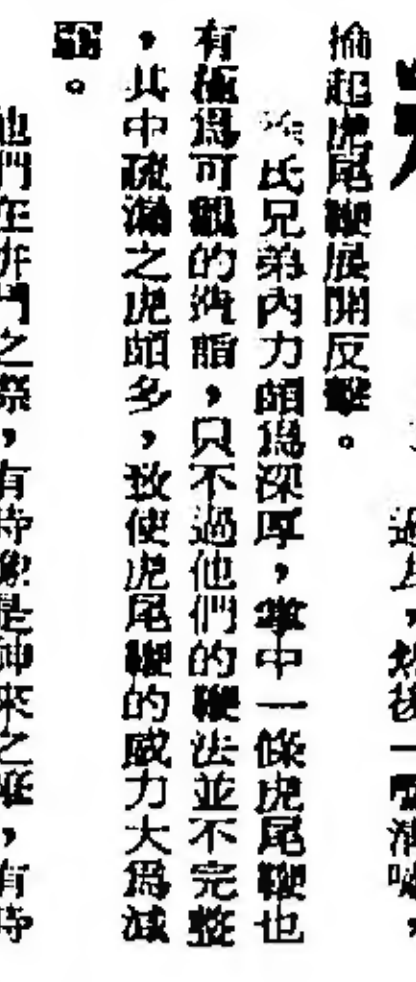 過身，然後一聲清嘯，
掄起虎尾鞭展開反擊。
氏兄弟內力頗為深厚，掌中一條虎尾鞭也
有極為可觀的造詣，只不過他們的鞭法並不完整
，其中疏漏之處頗多，致使虎尾鞭的威力大為減
弱。
他們在拚鬥之際，有時像是神來之筆，有時